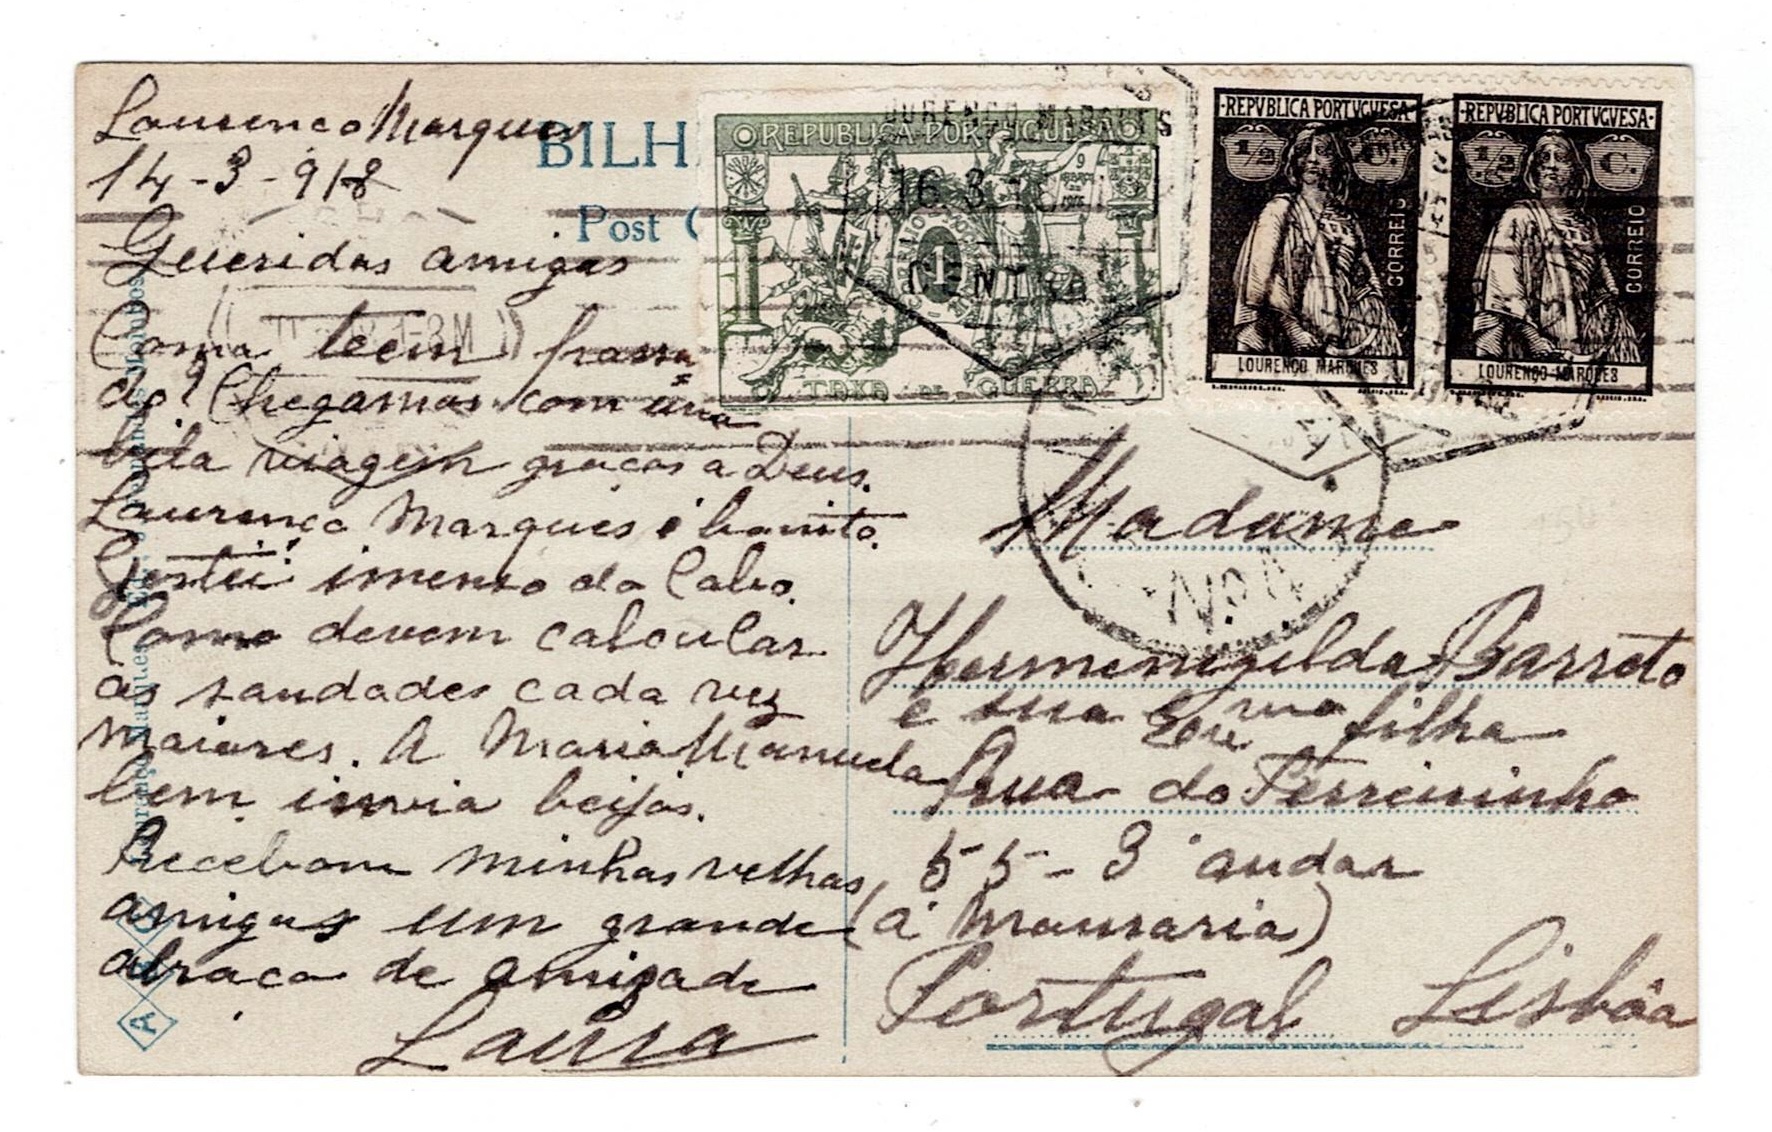 Lourenço Marques
14-3-918
Queridas amigas
Como teem passa
do? Chegamos com uma
bela viagem graças a Deus.
Lourenço Marques é bonito.
Gostei imenso do Cabo.
Como devem calcular
as saudades cada vez
maiores. A Maria Manuela
bem invia beijos.
Recebam minhas velhas
amigas um grande
abraço de amizade
Laura
BILH
Post C
REPUBLICA PORTUGUESA
1
CENTAVO
TAXA DE GUERRA
LOURENÇO MARQUES
16.3.18
REPVBLICA PORTVGVESA
1/2 C.
CORREIO
LOURENÇO MARQUES
REPVBLICA PORTVGVESA
1/2 C.
CORREIO
LOURENÇO MARQUES
Nº 4
1-3M
Madame
Hermenegilda Barreto
e sua Exma filha
Rua do Terreirinho
55-3º andar
(á Mouraria)
Portugal Lisbôa
A